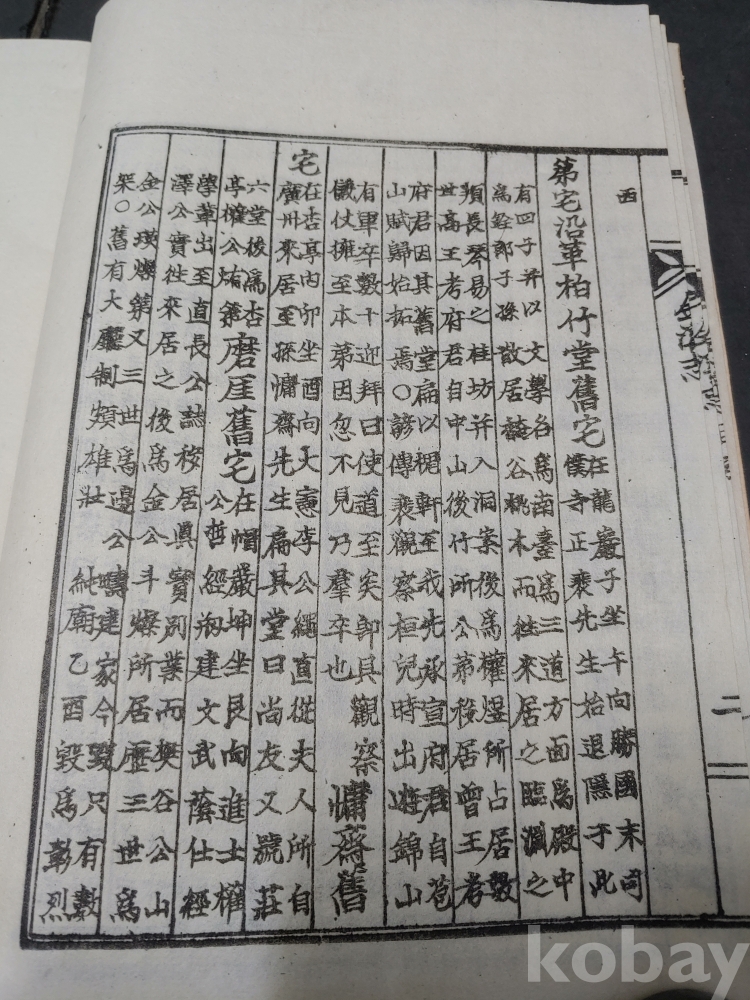 西
第宅沿革柏竹堂舊宅在龍巖子坐午向勝國末司
僕寺正裵先生始退隱于此
有四子并以文學名爲南臺爲三道方面爲殿中
爲銓郎子孫散居谷桃木而往來居之臨淵之
長琴易之桂坊并入洞案後爲權煜所占居數
世高王考府君自中山後竹所公第移居曾王考
府君因其舊堂扁以楣軒至我先承宣府君自苞
山賦歸始拓焉○諺傳裵觀察桓兒時出遊錦山
有軍卒數十迎拜曰使道至矣卽具觀察
儀仗擁至本第因忽不見乃羣卒也
慵齋舊
宅在杏亭內卯坐酉向大憲李公繩直從夫人所自
廣州來居至孫慵齋先生扁其堂曰尚友又號莊
六堂後爲杏
亭權公第
磨厓舊宅在帽巖坤坐艮向進士權
公晢經刱建文武蔭仕經
學輩出至直長公誌移居眞寶別業而樊谷公山
澤公實往來居之後爲金公斗燦所居歷三世爲
金公瑛燦第又三世爲邊公疇建家今毁只有數
架○舊有大廳制頗雄壯純廟乙酉毀爲彰烈
二
kobay